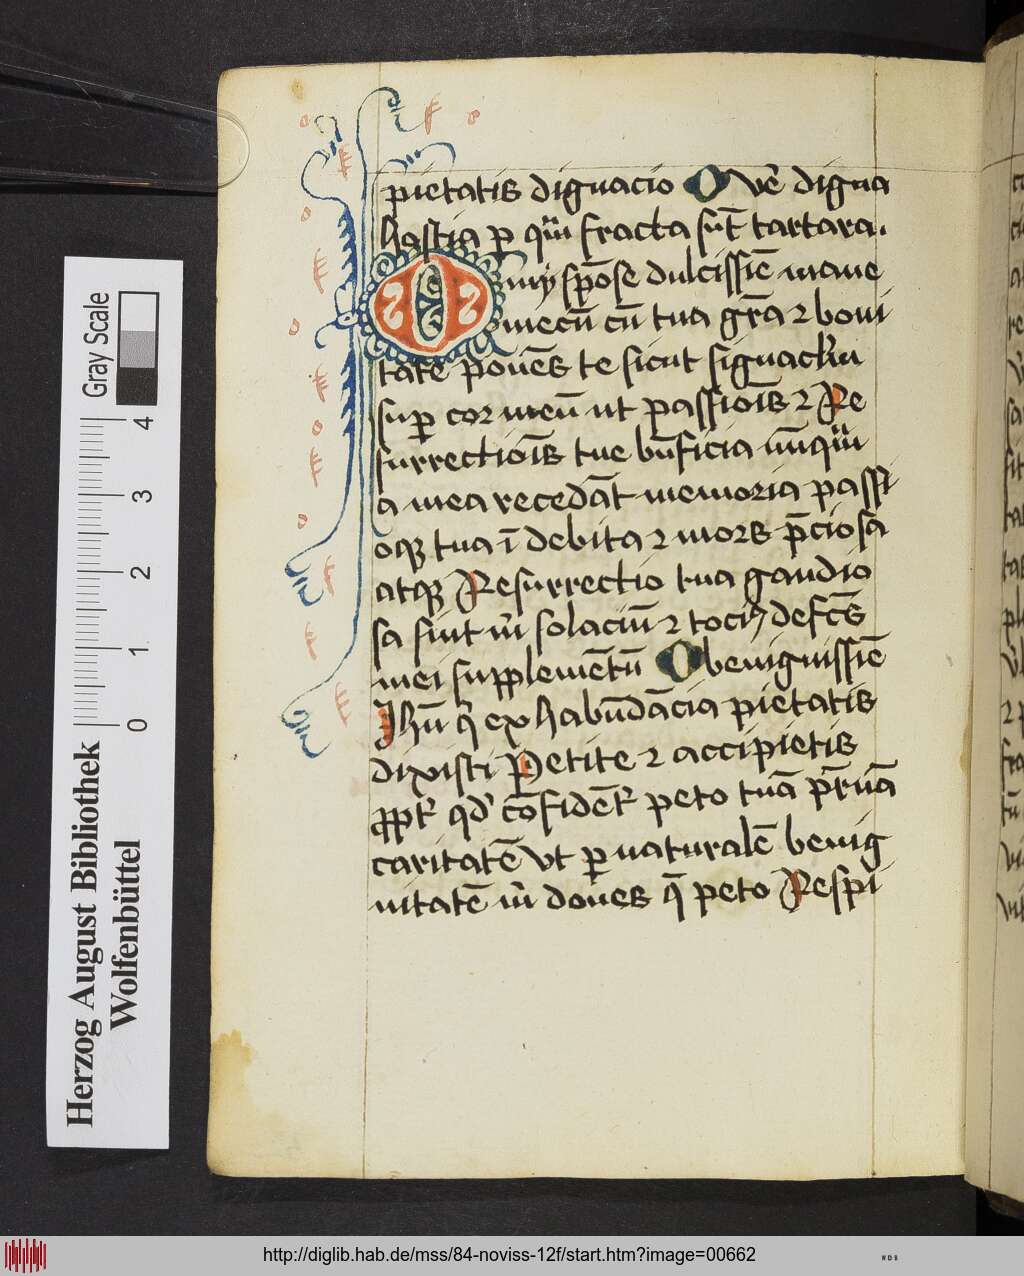 pietatis dignacio O ve᷎ digna
hostia ꝑ quā fracta sūt tartara.
O mỹ spōse dulcissīe mane
mecū cū tua grā ⁊ boni
tate ponēs te sicut signaclm̄
suꝑ cor meū ut passioīs ⁊ Re
surrectioīs tue bn̄ficia nūquā
a mea recedāt memoria passi
oqꝫ tua ī debita ⁊ mors p̄ciosa
atqꝫ Resurrectio tua gaudio
sa sint m̄ solaciū ⁊ toci⁹ defcūs
mei supplemētū O benignissīe
Jhū q̄ ex habūdācia pietatis
dixisti Petite ⁊ accipietis
ꝓpt̄ qd̓ cōfidēt̄ peto tuā p̄ruā
caritatē vt ꝑ naturalē benig
nitatē m̄ dones q̄ peto Respi
Gray Scale
4
3
2
1
0
Herzog August Bibliothek
Wolfenbüttel
http://diglib.hab.de/mss/84-noviss-12f/start.htm?image=00662
WDB